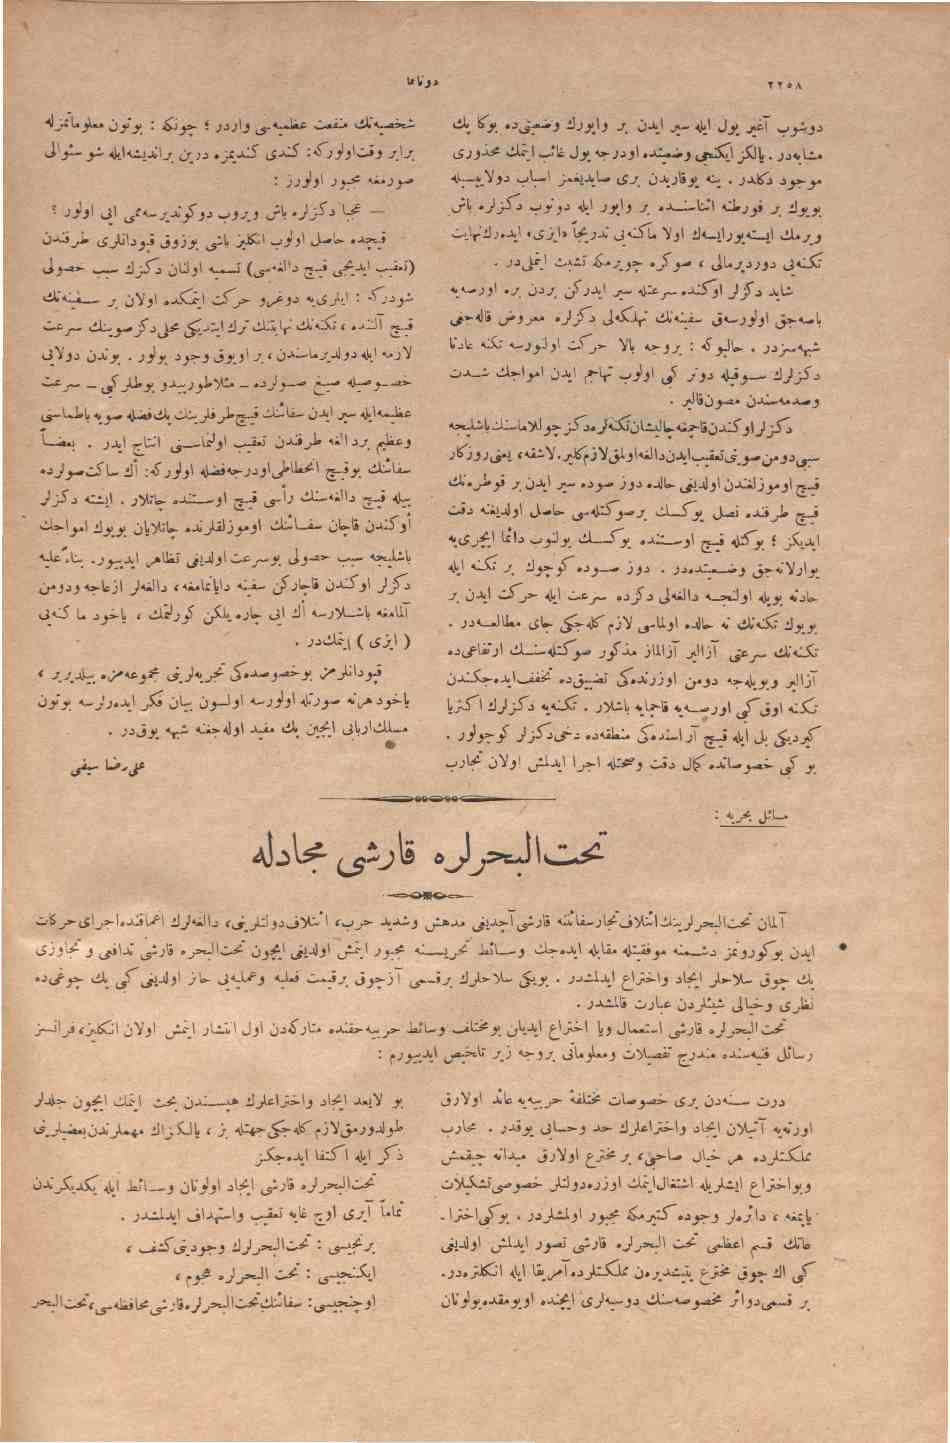 ٢٢٥٨
دونانما
دوشوب آغیر یول ایله سیر ایدن بر واپورك وضعیتی‌ده بوكا پك
مشابه‌در . یالكز ایكنجی وضعیتده اودرجه یول غائب ایتمك محذوری
موجود دكلدر . ینه یوقاریدن بری صایدیغمز اسباب دولاییسیله
بویوك بر فورطنه اثناسنده بر واپور ایله دونوب دكزلره باش
ویرمك ایسته‌یورایسه‌ك اولا ماكنه‌یی تدریجاً «ایزی» ایده‌رك نهایت
تكنه‌یی دوردیرمالی ، صوكره چویرمكه تشبث ایتملی‌در .
شاید دكزلر اوكنده سرعتله سیر ایدركن بردن بره اورصه‌یه
باصه‌جق اولورسه‌ق سفینه‌نك تهلكه‌لی دكزلره معروض قاله‌جغی
شبهه‌سزدر . حالبوكه : بروجه بالا حركت اولنورسه تكنه عادتا
دكزلرك سوقیله دونر كبی اولوب تهاجم ایدن امواجك شدت
وصدمه‌سندن مصون قالیر .
دكزلر اوكندن قاچمغه چالیشان تكنه‌لره دكز چوللاماسنك باشلیجه
سببی دومن صوینی تعقیب ایدن دالغه اولمق لازم كلیر. لاشقه، یعنی روزكار
قیچ اوموزلغندن اولدیغی حالده دوز صوده سیر ایدن بر قوطره‌نك
قیچ طرفنده نصل یوكسك برصوكتله‌سی حاصل اولدیغنه دقت
ایدیكز ؛ بوكتله قیچ اوستنده یوكسك بولنوب دائما ایچری‌یه
یوارلانه‌جق وضعیتده‌در . دوز صوده كوچوك بر تكنه ایله
حادثه بویله اولنجه دالغه‌لی دكزده سرعت ایله حركت ایدن بر
بویوك تكنه‌نك نه حالده اولماسی لازم كله‌جكی جای مطالعه‌در .
تكنه‌نك سرعتی آزالیر آزالماز مذكور صوكتله‌سنك ارتفاعی‌ده
آزالیر وبویله‌جه دومن اوزرنده‌كی تضییق‌ده تخفف ایده‌جكندن
تكنه اوق كبی اورصه‌یه قاچمایه باشلار . تكنه‌یه دكزلرك اكثریا
كیردیكی بل ایله قیچ آراسنده‌كی منطقه‌ده دخی دكزلر كوچولور .
بو كبی خصوصاتده كمال دقت وصحتله اجرا ایدلمش اولان تجارب
شخصیه‌نك منفعت عظمیه‌سی واردر ؛ چونكه : بوتون معلوماتمزله
برابر وقت اولوركه: كندی كندیمزه درین براندیشه‌ایله شو سئوالی
صورمغه مجبور اولورز :
— عجبا دكزلره باش ویروب دوكوندیرسه‌ممی ایی اولور ؟
قیچده حاصل اولوب انكلیز باشی بوزوق قپودانلری طرفندن
(تعقیب ایدیجی قیچ دالغه‌سی) تسمیه اولنان دكزك سبب حصولی
شودركه : ایلری‌یه دوغرو حركت ایتمكده اولان بر سفینه‌نك
قیچ آلتنده ، تكنه‌نك نهایتنك ترك ایتدیكی محلی دكز صوینك سرعت
لازمه ایله دولدیرماسندن ، بر اویوق وجود بولور . بوندن دولایی
خصوصیله صیغ صولرده — مثلاطورپیدو بوطلر كبی — سرعت
عظیمه‌ایله سیر ایدن سفائنك قیچ طرفلرینك پك‌فضله صویه باطماسنی
وعظیم بردالغه طرفندن تعقیب اولنماسنی انتاج ایدر . بعضاً
سفائنك بوقیچ انحطاطی اودرجه‌فضله اولوركه: اك ساكت صولرده
بیله قیچ دالغه‌سنك رأسی قیچ اوستنده چاتلار . ایشته دكزلر
اوكندن قاچان سفائنك اوموزلقلرنده چاتلایان بویوك امواجك
باشلیجه سبب حصولی بوسرعت اولدیغی تظاهر ایدییور. بناءً علیه
دكزلر اوكندن قاچاركن سفینه دایاتمامغه، دالغه‌لر ازعاجه ودومن
آلمامغه باشلارسه اك ایی چاره یلكن كورلتمك ، یاخود ماكنه‌یی
( ایزی ) ایتمك‌در .
قپودانلرمز بوخصوصده‌كی تجربه‌لرینی مجموعه‌مزه بیلدیریر ،
یاخود هرنه صورتله اولورسه اولسون بیان فكر ایده‌رلرسه بوتون
مسلك‌اربابی ایچین پك مفید اوله‌جغنه شبهه یوق‌در .
علی رضا سیفی
مسائل بحریه :
تحت‌البحرلره قارشی مجادله
آلمان تحت‌البحرلرینك ائتلاف تجارسفائننه قارشی آچدیغی مدهش وشدید حرب، ائتلاف‌دولتلرینی، دالغه‌لرك اعماقنده‌اجرای حركات
ایدن بوكورونمز دشمنه موفقیتله مقابله ایده‌جك وسائط تحریسنه مجبور ایتمش اولدیغی ایچون تحت‌البحره قارشی تدافعی و تجاوزی
پك چوق سلاحلر ایجاد واختراع ایدلمشدر . بویكی سلاحلرك برقسمی آزچوق برقیمت فعلیه وعملیه‌یی حائز اولدیغی كبی پك چوغی‌ده
نظری وخیالی شیئلردن عبارت قالمشدر .
تحت‌البحرلره قارشی استعمال ویا اختراع ایدیلن بومختلف وسائط حربیه‌حقنده متاركه‌دن اول انتشار ایتمش اولان انكلیز، فرانسز
رسائل فنیه‌سنده مندرج تفصیلات ومعلوماتی بروجه زیر تلخیص ایدییورم :
درت سنه‌دن بری خصوصات مختلفهٔ حربیه‌یه عائد اولارق
اورته‌یه آتیلان ایجاد واختراعلرك حد وحسابی یوقدر . محارب
مملكتلرده هر خیال صاحبی، بر مخترع اولارق میدانه چیقمش
وبواختراع ایشلریله اشتغال‌ایتمك اوزره‌دولتلر خصوصی‌تشكیلات
یاپمغه ، دائره‌لر وجوده كتیرمكه مجبور اولمشلردر . بوكبی‌اخترا-
عاتك قسم اعظمی تحت البحرلره قارشی تصور ایدلمش اولدیغی
كبی اك چوق مخترع یتیشدیره‌ن مملكتلرده‌آمریقا ایله انكلتره‌در.
بر قسمی‌دوائر مخصوصه‌سنك دوسیه‌لری ایچنده اویومقده‌بولونان
بو لایعد ایجاد واختراعلرك هپسندن بحث ایتمك ایچون جلدلر
طولدورمق‌لازم كله‌جكی جهتله بز ، یالكزاك مهملرندن‌بعضیلرینی
ذكر ایله اكتفا ایده‌جكز
تحت‌البحرلره قارشی ایجاد اولونان وسائط ایله یكدیكرندن
تماماً آیری اوچ غایه تعقیب واستهداف ایدلمشدر .
برنجیسی : تحت‌البحرلرك وجودینی‌كشف ،
ایكنجیسی : تحت البحرلره هجوم ،
اوچنجیسی: سفائنك تحت‌البحرلره‌قارشی‌محافظه‌سی، تحت‌البحر